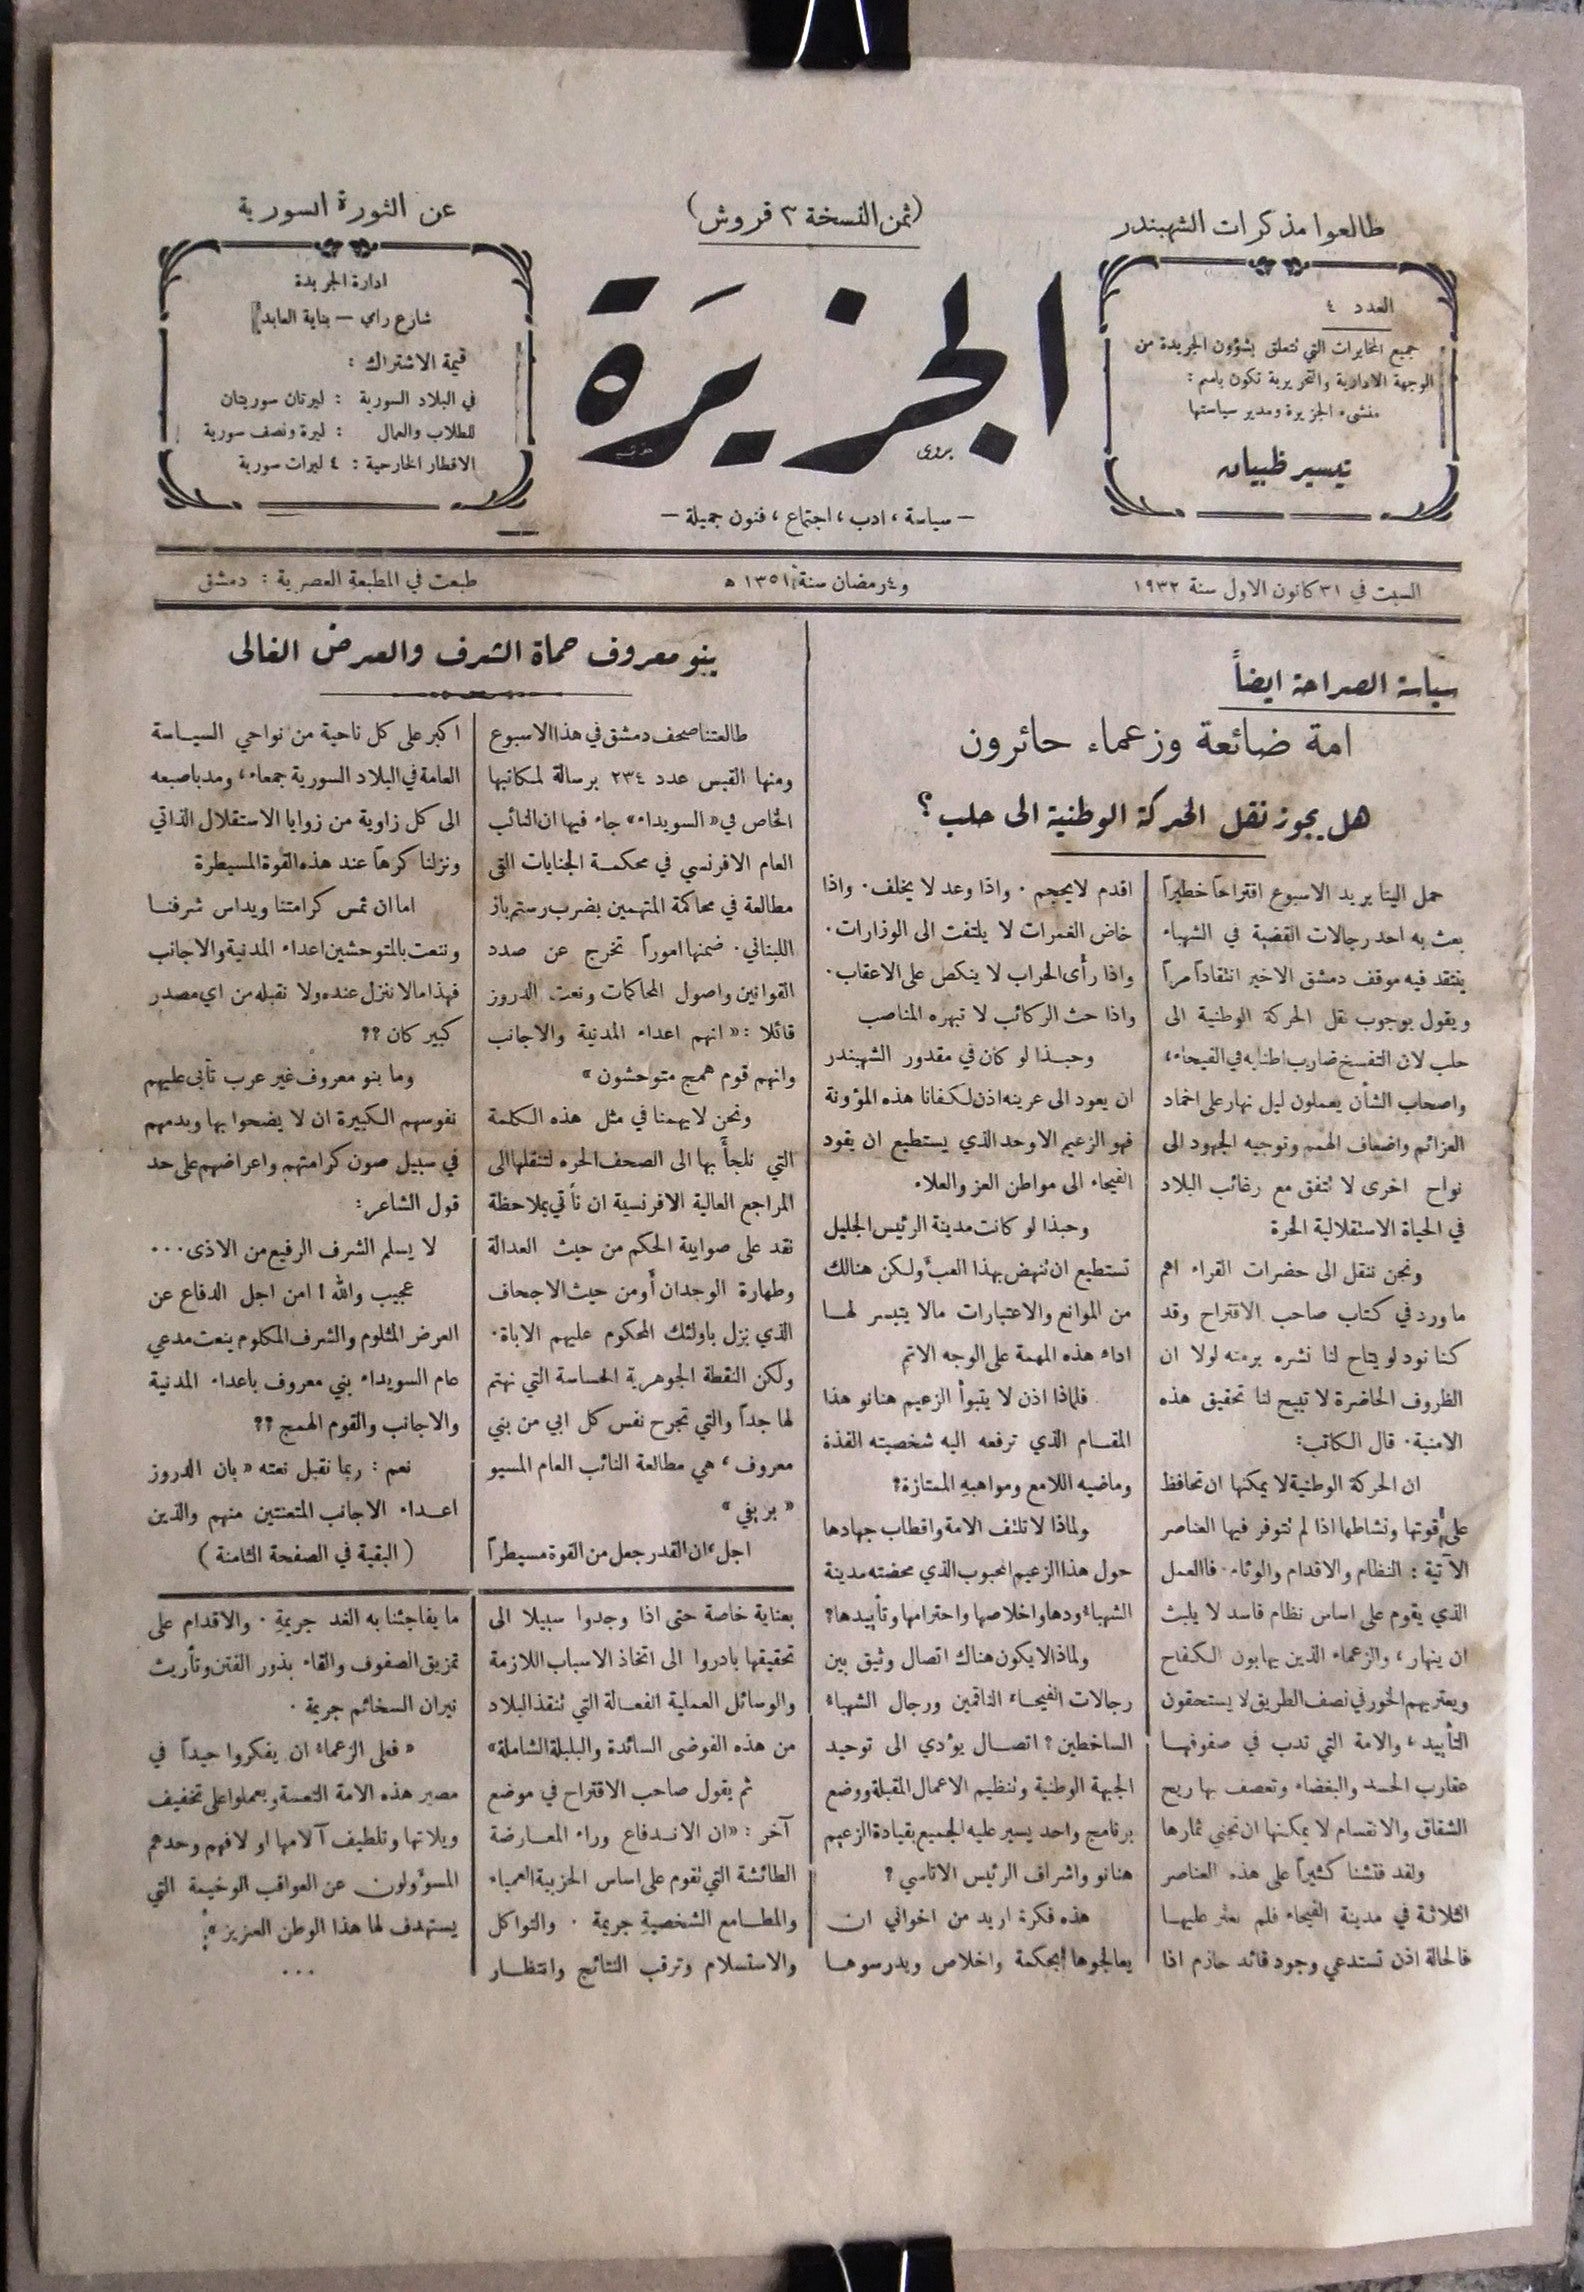 طالعوا مذكرات الشهبندر
(ثمن النسخة ٣ قروش)
عن الثورة السورية
العدد ٤
جميع المخابرات التي تتعلق بشؤون الجريدة من
الوجهة الادارية والتحريرية تكون باسم:
منشىء الجزيرة ومدير سياستها
تيسير ظبيان
الجزيرة
بروى
— سياسة ، ادب ، اجتماع ، فنون جميلة —
ادارة الجريدة
شارع رامي — بناية العابد
قيمة الاشتراك :
في البلاد السورية : ليرتان سوريتان
للطلاب والعمال : ليرة ونصف سورية
الاقطار الخارجية : ٤ ليرات سورية
السبت في ٣١ كانون الاول سنة ١٩٣٢
و٤ رمضان سنة ١٣٥١ ه
طبعت في المطبعة العصرية : دمشق
سياسة الصراحة ايضاً
امة ضائعة وزعماء حائرون
هل يجوز نقل الحركة الوطنية الى حلب؟
حمل الينا بريد الاسبوع اقتراحاً خطيراً
بعث به احد رجالات القضية في الشهباء
ينتقد فيه موقف دمشق الاخير انتقاداً مراً
ويقول بوجوب نقل الحركة الوطنية الى
حلب لان التفسخ ضارب اطنابه في الفيحاء،
واصحاب الشأن يعملون ليل نهار على اخماد
العزائم واضعاف الهمم وتوجيه الجهود الى
نواح اخرى لا تتفق مع رغائب البلاد
في الحياة الاستقلالية الحرة
ونحن ننقل الى حضرات القراء اهم
ما ورد في كتاب صاحب الاقتراح وقد
كنا نود لو يتاح لنا نشره برمته لولا ان
الظروف الحاضرة لا تتيح لنا تحقيق هذه
الامنية. قال الكاتب:
ان الحركة الوطنية لا يمكنها ان تحافظ
على قوتها ونشاطها اذا لم تتوفر فيها العناصر
الآتية : النظام والاقدام والوئام. فالعمل
الذي يقوم على اساس نظام فاسد لا يلبث
ان ينهار ، والزعماء الذين يهابون الكفاح
ويعتريهم الخور في نصف الطريق لا يستحقون
التأييد ، والامة التي تدب في صفوفها
عقارب الحسد والبغضاء وتعصف بها ريح
الشقاق والانقسام لا يمكنها ان تجني ثمارها
ولقد فتشنا كثيراً على هذه العناصر
الثلاثة في مدينة الفيحاء فلم نعثر عليها
فالحالة اذن تستدعي وجود قائد حازم اذا
اقدم لايحجم . واذا وعد لا يخلف. واذا
خاض الغمرات لا يلتفت الى الوزارات.
واذا رأى الحراب لا ينكص على الاعقاب.
واذا حث الركائب لا تبهره المناصب
وحبذا لو كان في مقدور الشهبندر
ان يعود الى عرينه اذن لكفانا هذه المؤونة
فهو الزعيم الاوحد الذي يستطيع ان يقود
الفيحاء الى مواطن العز والعلاء.
وحبذا لو كانت مدينة الرئيس الجليل
تستطيع ان تنهض بهذا العبء ولكن هنالك
من الموانع والاعتبارات مالا يتيسر لها
اداء هذه المهمة على الوجه الاتم
فلماذا اذن لا يتبوأ الزعيم هنانو هذا
المقام الذي ترفعه اليه شخصيته الفذة
وماضيه اللامع ومواهبه الممتازة؟
ولماذا لا تلتف الامة واقطاب جهادها
حول هذا الزعيم المحبوب الذي محضته مدينة
الشهباء ودها واخلاصها واحترامها وتأييدها؟
ولماذا لايكون هناك اتصال وثيق بين
رجالات الفيحاء الناقمين ورجال الشهباء
الساخطين؟ اتصال يؤدي الى توحيد
الجبهة الوطنية وتنظيم الاعمال المقبلة ووضع
برنامج واحد يسير عليه الجميع بقيادة الزعيم
هنانو واشراف الرئيس الاتاسي؟
هذه فكرة اريد من اخواني ان
يعالجوها بحكمة واخلاص ويدرسوها
بنو معروف حماة الشرف والعرض الغالى
طالعتنا صحف دمشق في هذا الاسبوع
ومنها القبس عدد ٢٣٤ برسالة لمكاتبها
الخاص في «السويداء» جاء فيها ان النائب
العام الافرنسي في محكمة الجنايات القى
مطالعة في محاكمة المتهمين بضرب رستم باز
اللبناني. ضمنها اموراً تخرج عن صدد
القوانين واصول المحاكمات ونعت الدروز
قائلا : «انهم اعداء المدنية والاجانب
وانهم قوم همج متوحشون»
ونحن لايهمنا في مثل هذه الكلمة
التي نلجأ بها الى الصحف الحره لتنقلها الى
المراجع العالية الافرنسية ان نأتي بملاحظة
نقد على صوابية الحكم من حيث العدالة
وطهارة الوجدان أو من حيث الاجحاف
الذي نزل باولئك المحكوم عليهم الاباة.
ولكن النقطة الجوهرية الحساسة التي نهتم
لها جداً والتي تجرح نفس كل ابي من بني
معروف ، هي مطالعة النائب العام المسيو
اجل، ان القدر جعل من القوة مسيطراً
اكبر على كل ناحية من نواحي السياسة
العامة في البلاد السورية جمعاء، ومد باصبعه
الى كل زاوية من زوايا الاستقلال الذاتي
ونزلنا كرهاً عند هذه القوة المسيطرة
اما ان تمس كرامتنا ويداس شرفنا
وننعت بالمتوحشين اعداء المدنية والاجانب
فهذا مالا ننزل عنده ولا نقبله من اي مصدر
كبير كان ؟؟
وما بنو معروف غير عرب تأبى عليهم
نفوسهم الكبيرة ان لا يضحوا بها وبدمهم
في سبيل صون كرامتهم واعراضهم على حد
قول الشاعر:
لا يسلم الشرف الرفيع من الاذى ...
عجيب والله! امن اجل الدفاع عن
العرض المثلوم والشرف المكلوم ينعت مدعي
عام السويداء بني معروف باعداء المدنية
والاجانب والقوم الهمج ؟؟
نعم : ربما نقبل نعته «بان الدروز
اعداء الاجانب المتعنتين منهم والذين
(البقية في الصفحة الثامنة)
بعناية خاصة حتى اذا وجدوا سبيلا الى
تحقيقها بادروا الى اتخاذ الاسباب اللازمة
والوسائل العملية الفعالة التي تنقذ البلاد
من هذه الفوضى السائدة والبلبلة الشاملة»
ثم يقول صاحب الاقتراح في موضع
آخر : «ان الاندفاع وراء المعارضة
الطائشة التي تقوم على اساس الحزبية العمياء
والمطامع الشخصية جريمة . والتواكل
والاستسلام وترقب النتائج وانتظار
ما يفاجئنا به الغد جريمة . والاقدام على
تمزيق الصفوف والقاء بذور الفتن وتأريث
نيران السخائم جريمة .
«فعلى الزعماء ان يفكروا جيداً في
مصير هذه الامة التعسة ويعملوا على تخفيف
ويلاتها وتلطيف آلامها او لا فهم وحدهم
المسؤولون عن العواقب الوخيمة التي
يستهدف لها هذا الوطن العزيز»
...